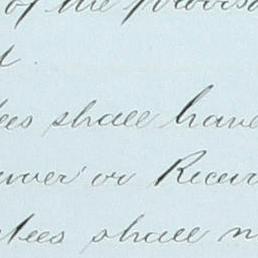 of the proviso
tees shall have
or Receiv
tees shall n